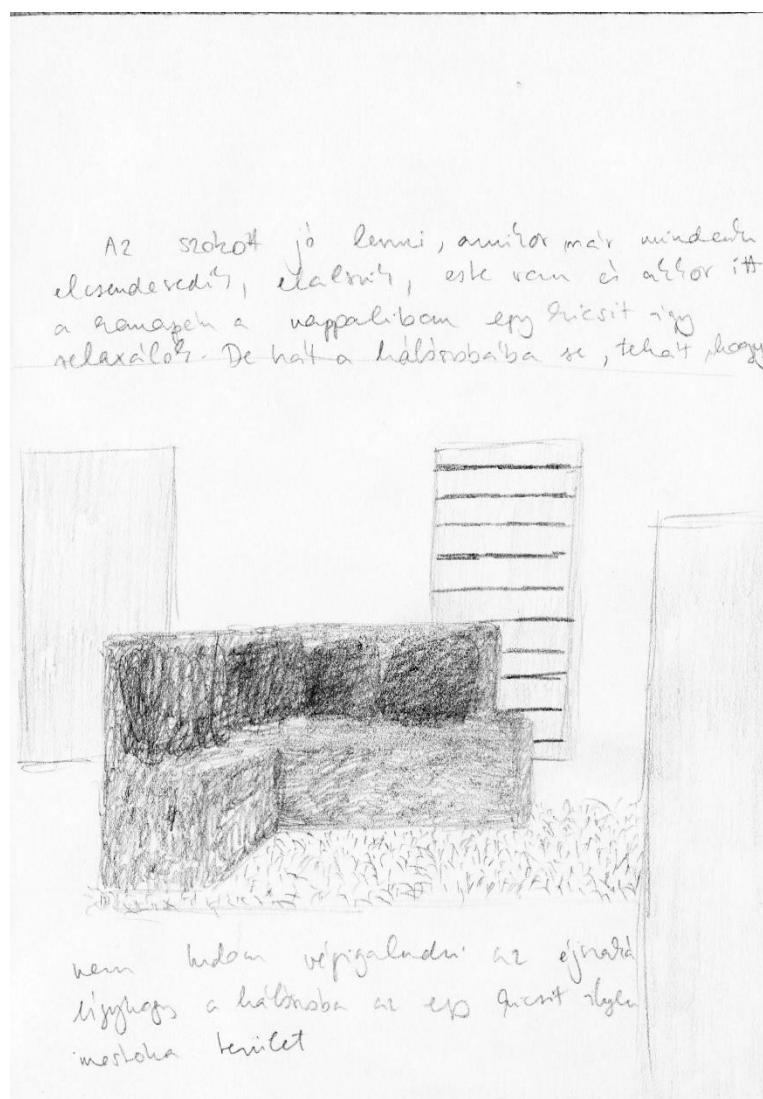 Az szokott jó lenni, amikor már mindenki
elcsendesedik, elalszik, este van és akkor itt
a kanapén a nappaliban egy kicsit így
relaxálok. De hát a hálószobába se, tehát, hogy
nem tudom végigaludni az éjszakát
úgyhogy a hálószoba az egy kicsit ilyen
mostoha terület